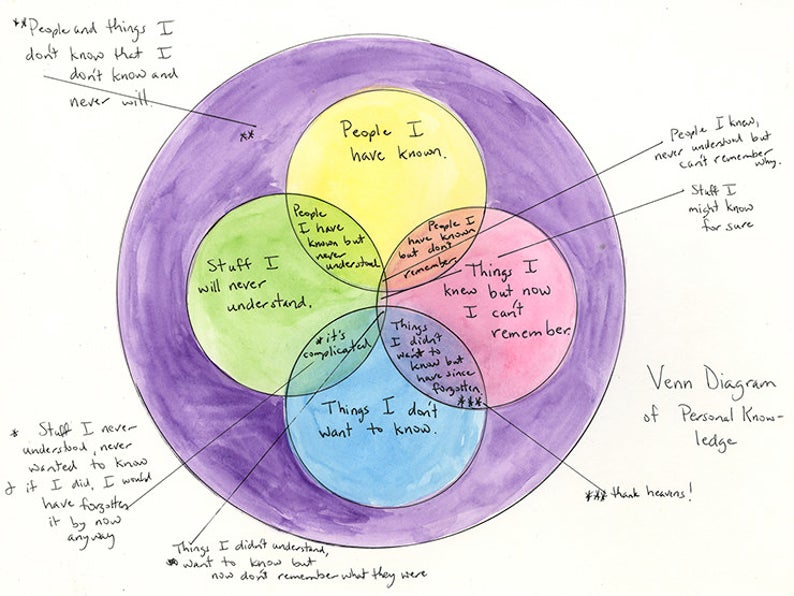 **People and things I
don't know that I
don't know and
never will.
**
People I
have known.
People I knew,
never understood but
can't remember
why.
Stuff I
might know
for sure
People
I have
known but
never
understood
People I
have known
but don't
remember
Stuff I
will never
understand.
Things I
knew but now
I can't
remember.
*it's
complicated
Things
I didn't
want to
know but
have since
forgotten
***
Things I don't
want to know.
Venn Diagram
of Personal Know-
ledge
* Stuff I never
understood, never
wanted to know
& if I did, I would
have forgotten
it by now
anyway
*** thank heavens!
Things I didn't understand,
want to know but
now don't remember what they were